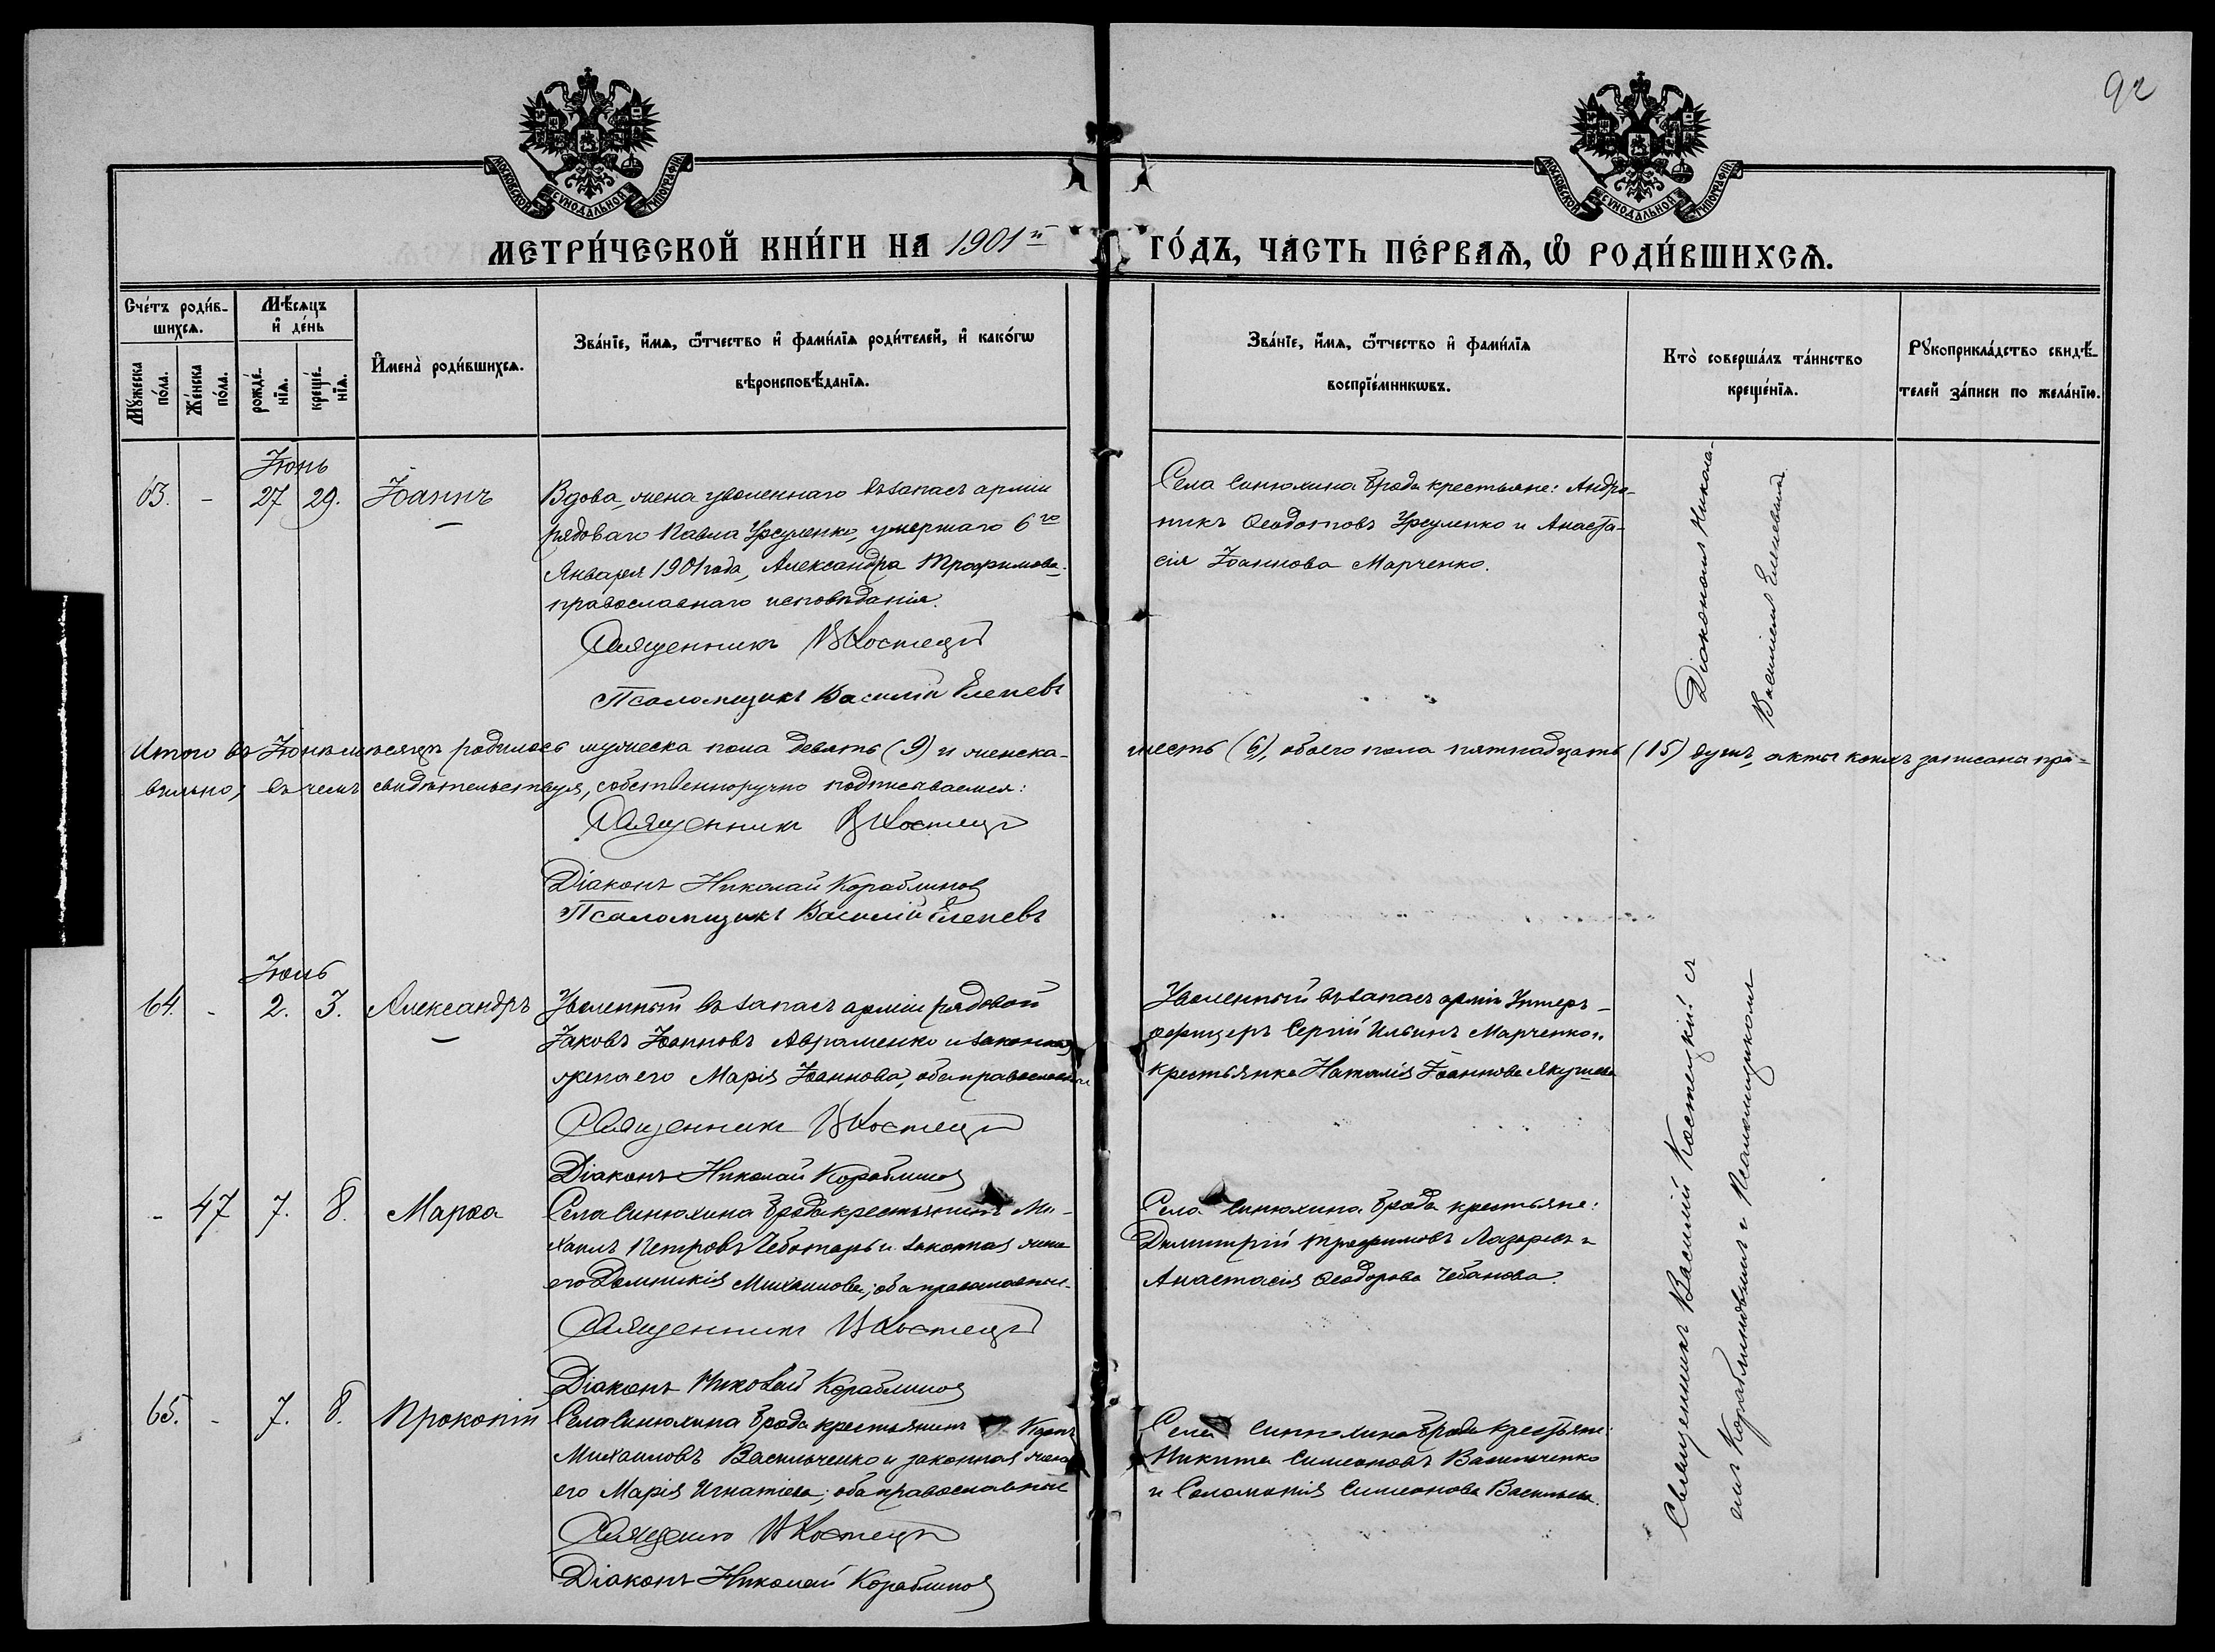 92
МОСКОВСКОЙ СѴНОДАЛЬНОЙ ТИПОГРАФІИ
МОСКОВСКОЙ СѴНОДАЛЬНОЙ ТИПОГРАФІИ
МЕТРИ́ЧЕСКОЙ КНИ́ГИ НА 1901й ГО́ДЪ, ЧА́СТЬ ПЕ́РВАѦ, Ѡ РОДИ́ВШИХСѦ.
Сче́тъ роди́в-
шихсѧ.
Мꙋжеска по́ла.
Же́нска по́ла.
Мѣ́сѧцъ
и де́нь
рожде́-
нїѧ.
креще́-
нїѧ.
Имена̀ роди́вшихсѧ.
Зва́нїе, и́мѧ, ѻ́тчество и фами́лїѧ роди́телей, и како́гѡ
вѣроисповѣ́данїѧ.
Зва́нїе, и́мѧ, ѻ́тчество и фами́лїѧ
воспрїе́мникѡвъ.
Кто̀ соверша́лъ та́инство
креще́нїѧ.
Рꙋкоприкла́дство свидѣ́-
телей за́писи по жела́нїю.
Іюнь
63. - 27 29. Іоаннъ
Вдова, жена уволеннаго въ запасъ арміи
рядоваго Павла Урсуленко, умершаго 6го
Января 1901 года, Александра Трофимова,
православнаго исповѣданія.
Священникъ В Костецкій
Псаломщикъ Василій Елепевъ
Села Синюхина Брода крестьяне: Андро-
никъ Ѳеодотовъ Урсуленко и Анаста-
сія Іоаннова Марченко.
Итого въ Іюнѣ мѣсяцѣ родилось мужеска пола девять (9) и женска - шесть (6), обоего пола пятнадцать (15) душъ, акты коихъ записаны пра-
вильно, въ чемъ свидѣтельствуя, собственноручно подписываемся:
Священникъ В Костецкій
Діаконъ Николай Кораблинов
Псаломщикъ Василій Елепевъ
Іюль
64. - 2. 3. Александръ
Уволенный въ запасъ арміи рядовой
Іаковъ Іоанновъ Авраменко и законная
жена его Марія Іоаннова, оба православные
Священникъ В Костецкій
Діаконъ Николай Кораблинов
Уволенный въ запасъ арміи Унтеръ-
офицеръ Сергій Ильинъ Марченко и
крестьянка Наталія Іоаннова Якушева
- 47 7. 8. Марѳа
Села Синюхина Брода крестьянинъ Ми-
хаилъ Петровъ Чеботарь и законная жена
его Домникія Михаилова, оба православные.
Священникъ В Костецкій
Діаконъ Николай Кораблинов
Села Синюхина Брода крестьяне:
Димитрій Трофимовъ Лазаревъ и
Анастасія Ѳеодорова Чебанова.
65. - 7. 8. Прокопій
Села Синюхина Брода крестьянинъ Карпъ
Михаиловъ Васильченко и законная жена
его Марія Игнатіева, оба православные
В Костецкій
Діаконъ Николай Кораблинов
Села Синюхина Брода крестьяне:
Никита Симеоновъ Васильченко
и Соломонія Симеонова
Василіемъ
Священникъ Василій Костецкій съ
Кораблиновымъ и Псаломщикомъ